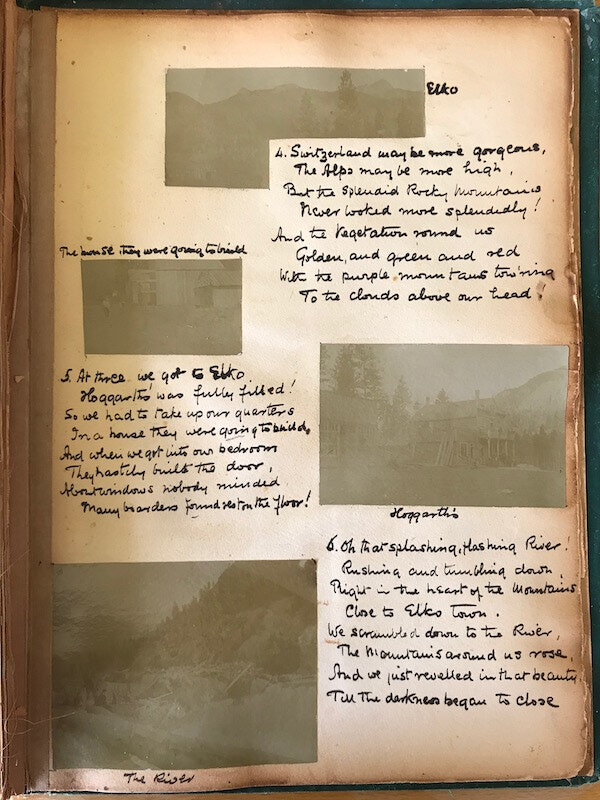 Elko
4. Switzerland may be more gorgeous,
The Alps may be more high,
But the splendid Rocky Mountains
Never looked more splendidly!
And the Vegetation round us
Golden, and green and red
With the purple mountains tow'ring
To the clouds above our head!
The house they were going to build
5. At three we got to Elko
Hoggarth's was fully filled!
So we had to take up our quarters
In a house they were going to build,
And when we got into our bedroom
They hastily built the door,
About windows nobody minded
Many boarders found rest on the floor!
Hoggarth's
6. Oh that splashing, flashing River!
Rushing and tumbling down
Right in the heart of the Mountains
Close to Elko town.
We scrambled down to the River,
The Mountains around us rose,
And we just revelled in that beauty
Till the darkness began to close
The River